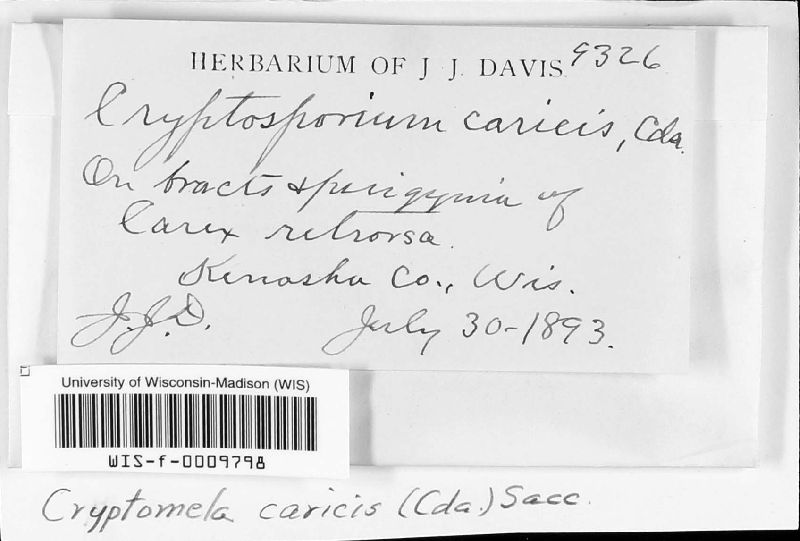 HERBARIUM OF J J. DAVIS. 9326
Cryptosporium caricis, Cda.
On bracts & perigynia of
Carex retrorsa.
Kenosha Co., Wis.
J.J.D. July 30-1893.
University of Wisconsin-Madison (WIS)
WIS-f-0009798
Cryptomela caricis (Cda.) Sacc.